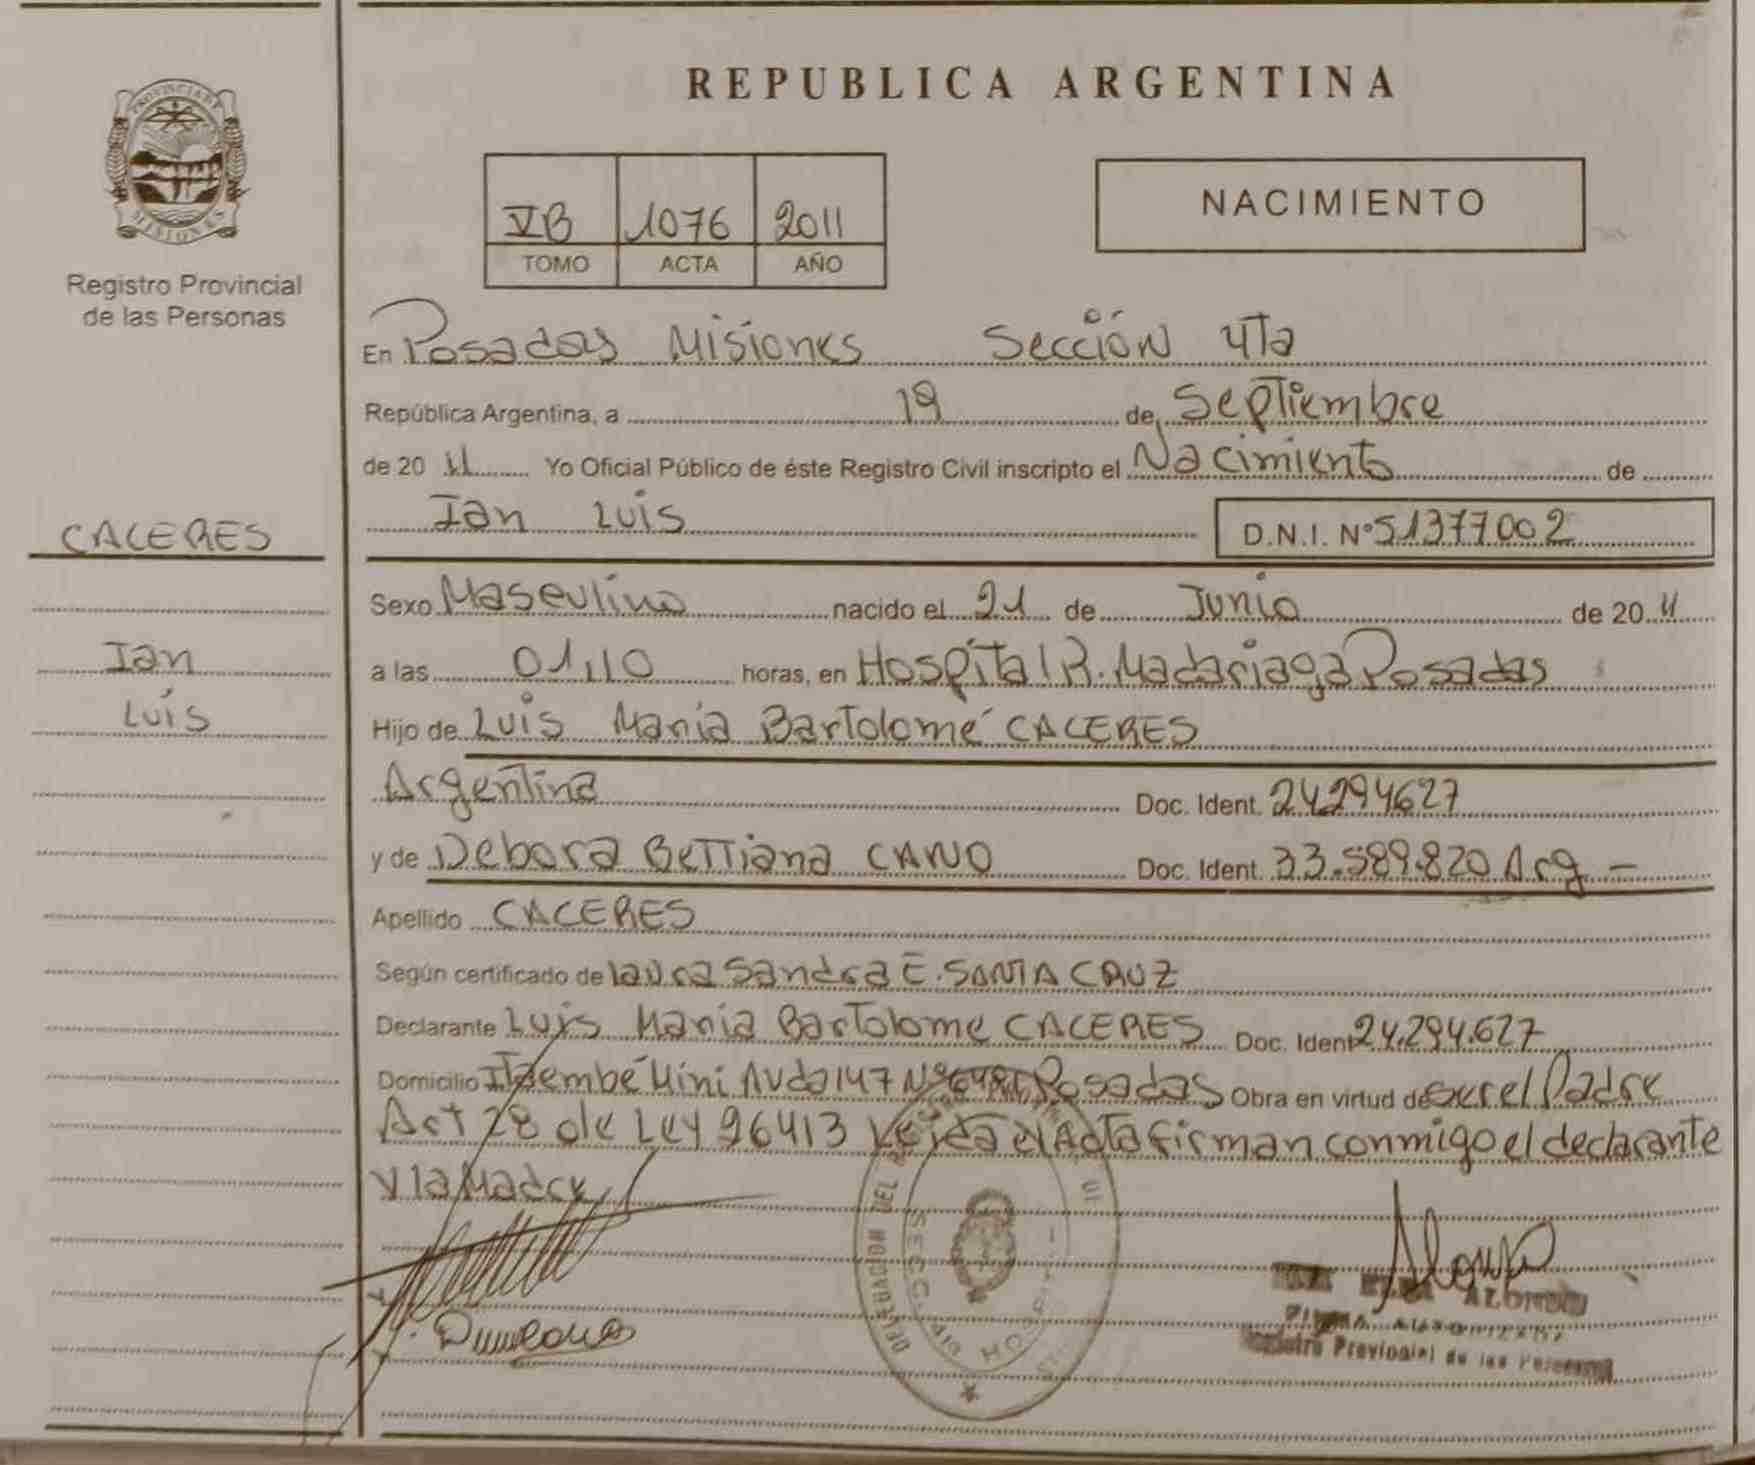 REPUBLICA ARGENTINA
PROVINCIA DE
MISIONES
Registro Provincial
de las Personas
VB 1076 2011
TOMO ACTA AÑO
NACIMIENTO
En Posadas Misiones Sección 4Ta
República Argentina, a 19 de Septiembre
de 20 11 Yo Oficial Público de éste Registro Civil inscripto el Nacimiento de
Ian Luis D.N.I. Nº 51377002
CACERES
Ian
Luis
Sexo Masculino nacido el 21 de Junio de 20 11
a las 01,10 horas, en Hospital R. Madariaga Posadas
Hijo de Luis Maria Bartolomé CACERES
Argentina Doc. Ident. 24294627
y de Debora Bettiana CANO Doc. Ident. 33.589.820 Arg -
Apellido CACERES
Según certificado de laura Sandra E. SANTA CRUZ
Declarante Luis Maria Bartolome CACERES Doc. Ident 24.294.627
Domicilio Itaembé Mini Avda 147 Posadas Obra en virtud de ser el Padre
Art 28 de Ley 26413 Leida el Acta firman conmigo el declarante
y la Madre
ALONSO
Registro Provincial de las Personas